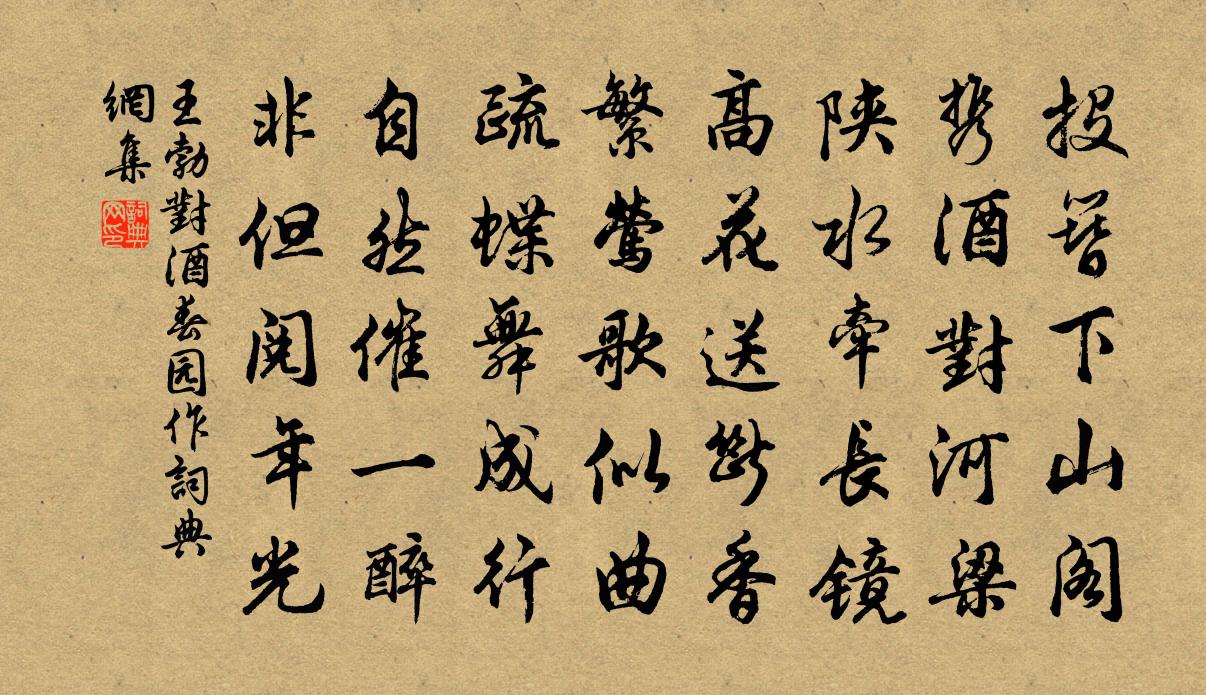 投簪下山閣
携酒對河梁
陝水牽長鏡
高花送斷香
繁鶯歌似曲
疏蝶舞成行
自然催一醉
非但閱年光
王勃對酒春园作詞典
網集
詞典
网印